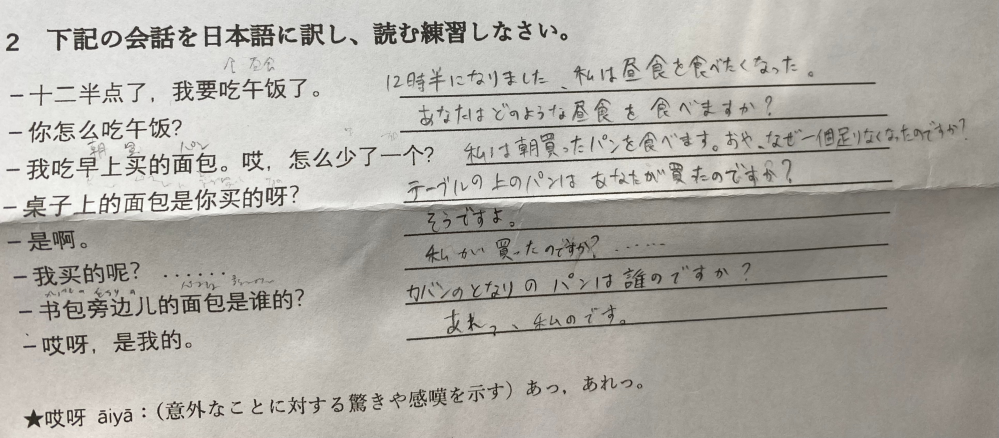 2 下記の会話を日本語に訳し、読む練習しなさい。
昼食
– 十二半点了，我要吃午饭了。 12時半になりました、私は昼食を食べたくなった。
– 你怎么吃午饭？ あなたはどのような昼食を食べますか？
朝 買 パン
– 我吃早上买的面包。哎，怎么少了一个？ 私は朝買ったパンを食べます。おや、なぜ一個足りなくなったのですか？
– 桌子上的面包是你买的呀？ テーブルの上のパンはあなたが買たのですか？
– 是啊。 そうですよ。
– 我买的呢？…… 私が買ったのですか？……
– 书包旁边儿的面包是谁的？ カバンのとなりのパンは誰のですか？
– 哎呀，是我的。 あれっ、私のです。
★哎呀 āiyā：（意外なことに対する驚きや感嘆を示す）あっ，あれっ。